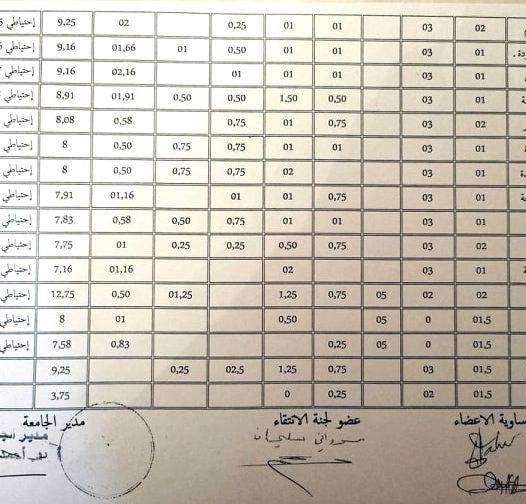 02 03 01 01 0,25 02 9,25 إحتياطي
01 03 01 01 0,50 01 01,66 9,16 إحتياطي
01 03 01 01 01 02,16 9,16 إحتياطي
01 03 0,50 1,50 0,50 0,50 01,91 8,91 إحتياطي
02 03 0,75 01 0,75 0,58 8,08 إحتياطي
01 03 01 01 0,75 0,75 0,50 8 إحتياطي
01 03 02 0,75 0,75 0,50 8 إحتياطي
01 03 0,75 01 01 01,16 7,91 إحتياطي
01 03 01 01 0,75 0,50 0,58 7,83 إحتياطي
02 03 0,75 0,50 0,25 0,25 01 7,75 إحتياطي
01 03 02 01,16 7,16 إحتياطي
02 02 05 0,75 1,25 01,25 0,50 12,75 إحتياطي
01,5 0 05 0,50 01 8 إحتياطي
01,5 0 05 0,25 0,83 7,58 إحتياطي
01,5 03 0,75 1,25 02,5 0,25 9,25
01,5 02 0,25 0 3,75
الاعضاء عضو لجنة الانتقاء مدير الجامعة
مدير